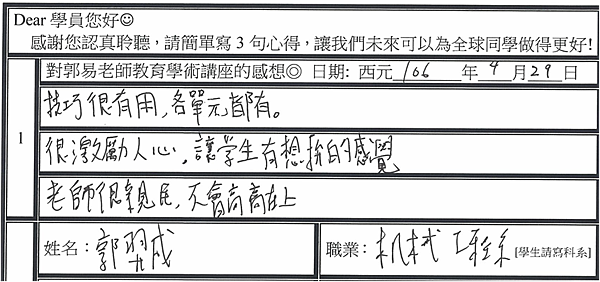 Dear 學員您好☺
感謝您認真聆聽，請簡單寫 3 句心得，讓我們未來可以為全球同學做得更好!
對郭易老師教育學術講座的感想◎ 日期: 西元 106 年 4 月 29 日
1
技巧很有用，各單元都有。
很激勵人心，讓學生有想拚的感覺
老師很親民，不會高高在上
姓名：郭羿成
職業：机械工程系 [學生請寫科系]